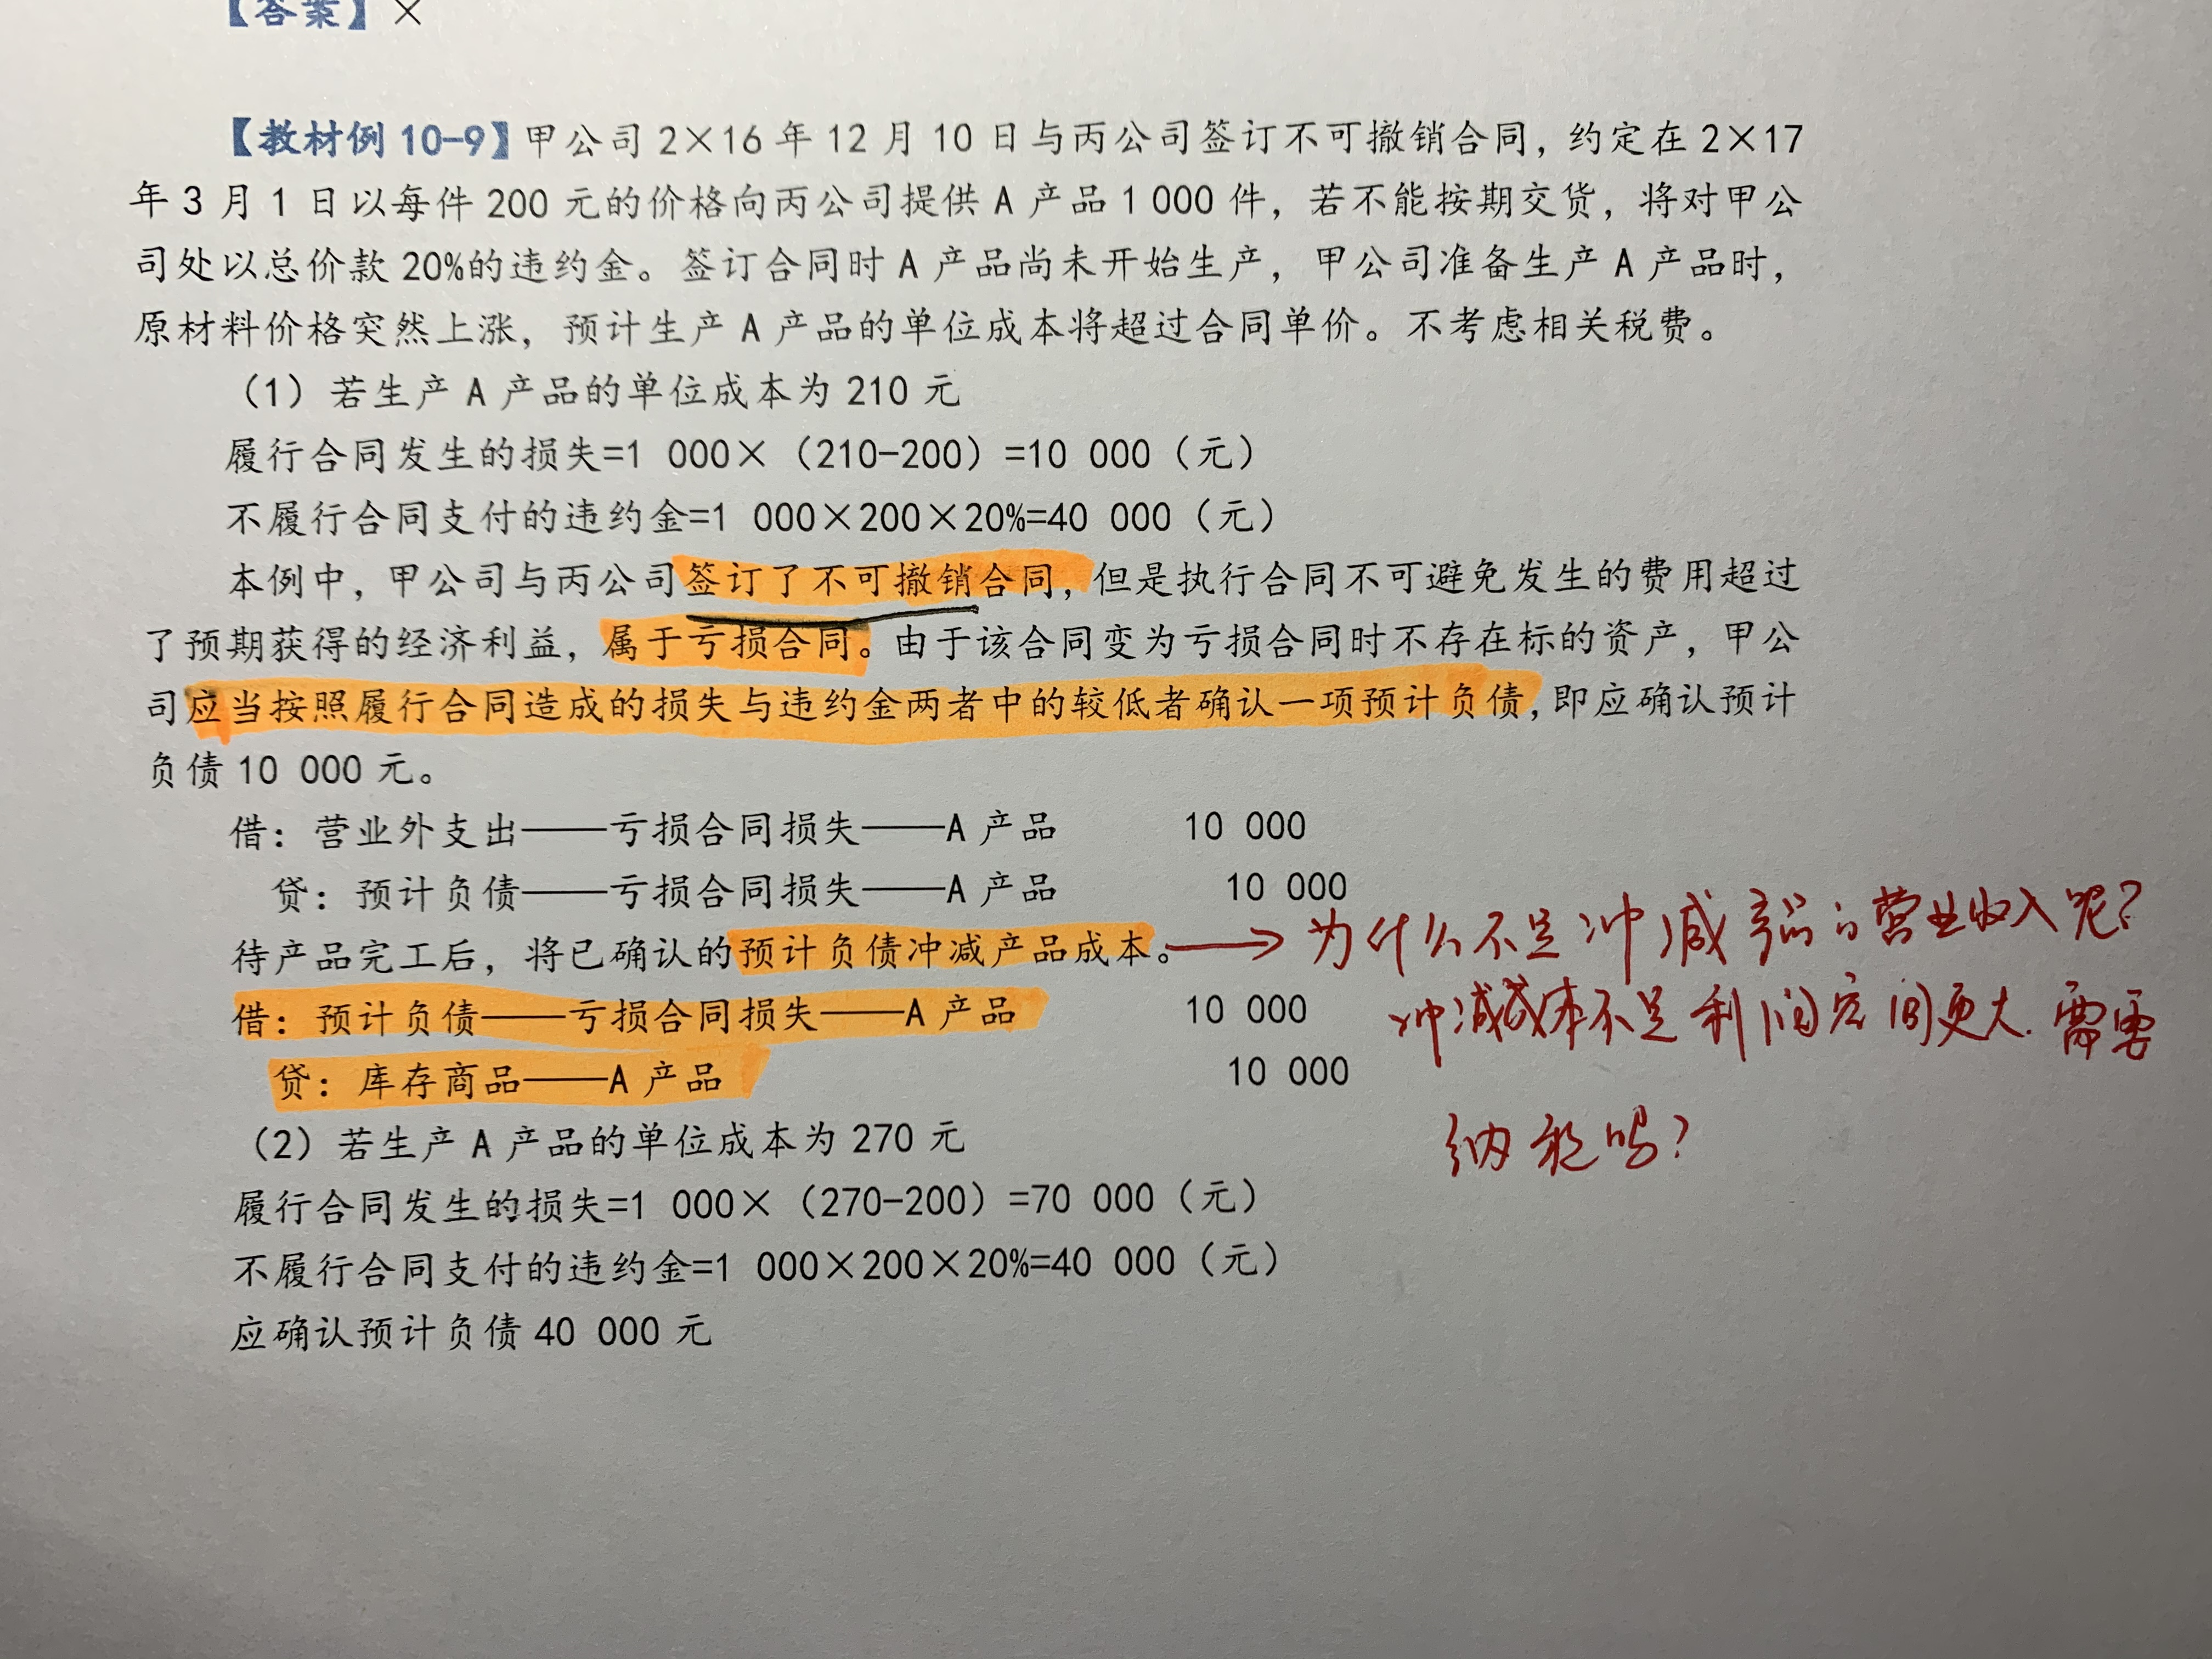 【答案】×
【教材例 10-9】甲公司 2×16 年 12 月 10 日与丙公司签订不可撤销合同，约定在 2×17
年 3 月 1 日以每件 200 元的价格向丙公司提供 A 产品 1 000 件，若不能按期交货，将对甲公
司处以总价款 20%的违约金。签订合同时 A 产品尚未开始生产，甲公司准备生产 A 产品时，
原材料价格突然上涨，预计生产 A 产品的单位成本将超过合同单价。不考虑相关税费。
（1）若生产 A 产品的单位成本为 210 元
履行合同发生的损失=1 000×（210-200）=10 000（元）
不履行合同支付的违约金=1 000×200×20%=40 000（元）
本例中，甲公司与丙公司签订了不可撤销合同，但是执行合同不可避免发生的费用超过
了预期获得的经济利益，属于亏损合同。由于该合同变为亏损合同时不存在标的资产，甲公
司应当按照履行合同造成的损失与违约金两者中的较低者确认一项预计负债，即应确认预计
负债 10 000 元。
借：营业外支出——亏损合同损失——A 产品 10 000
贷：预计负债——亏损合同损失——A 产品 10 000
待产品完工后，将已确认的预计负债冲减产品成本。→ 为什么不是冲减产品的营业收入呢？
借：预计负债——亏损合同损失——A 产品 10 000 冲减成本不是利润空间更大.需要
贷：库存商品——A 产品 10 000
纳税吗？
（2）若生产 A 产品的单位成本为 270 元
履行合同发生的损失=1 000×（270-200）=70 000（元）
不履行合同支付的违约金=1 000×200×20%=40 000（元）
应确认预计负债 40 000 元